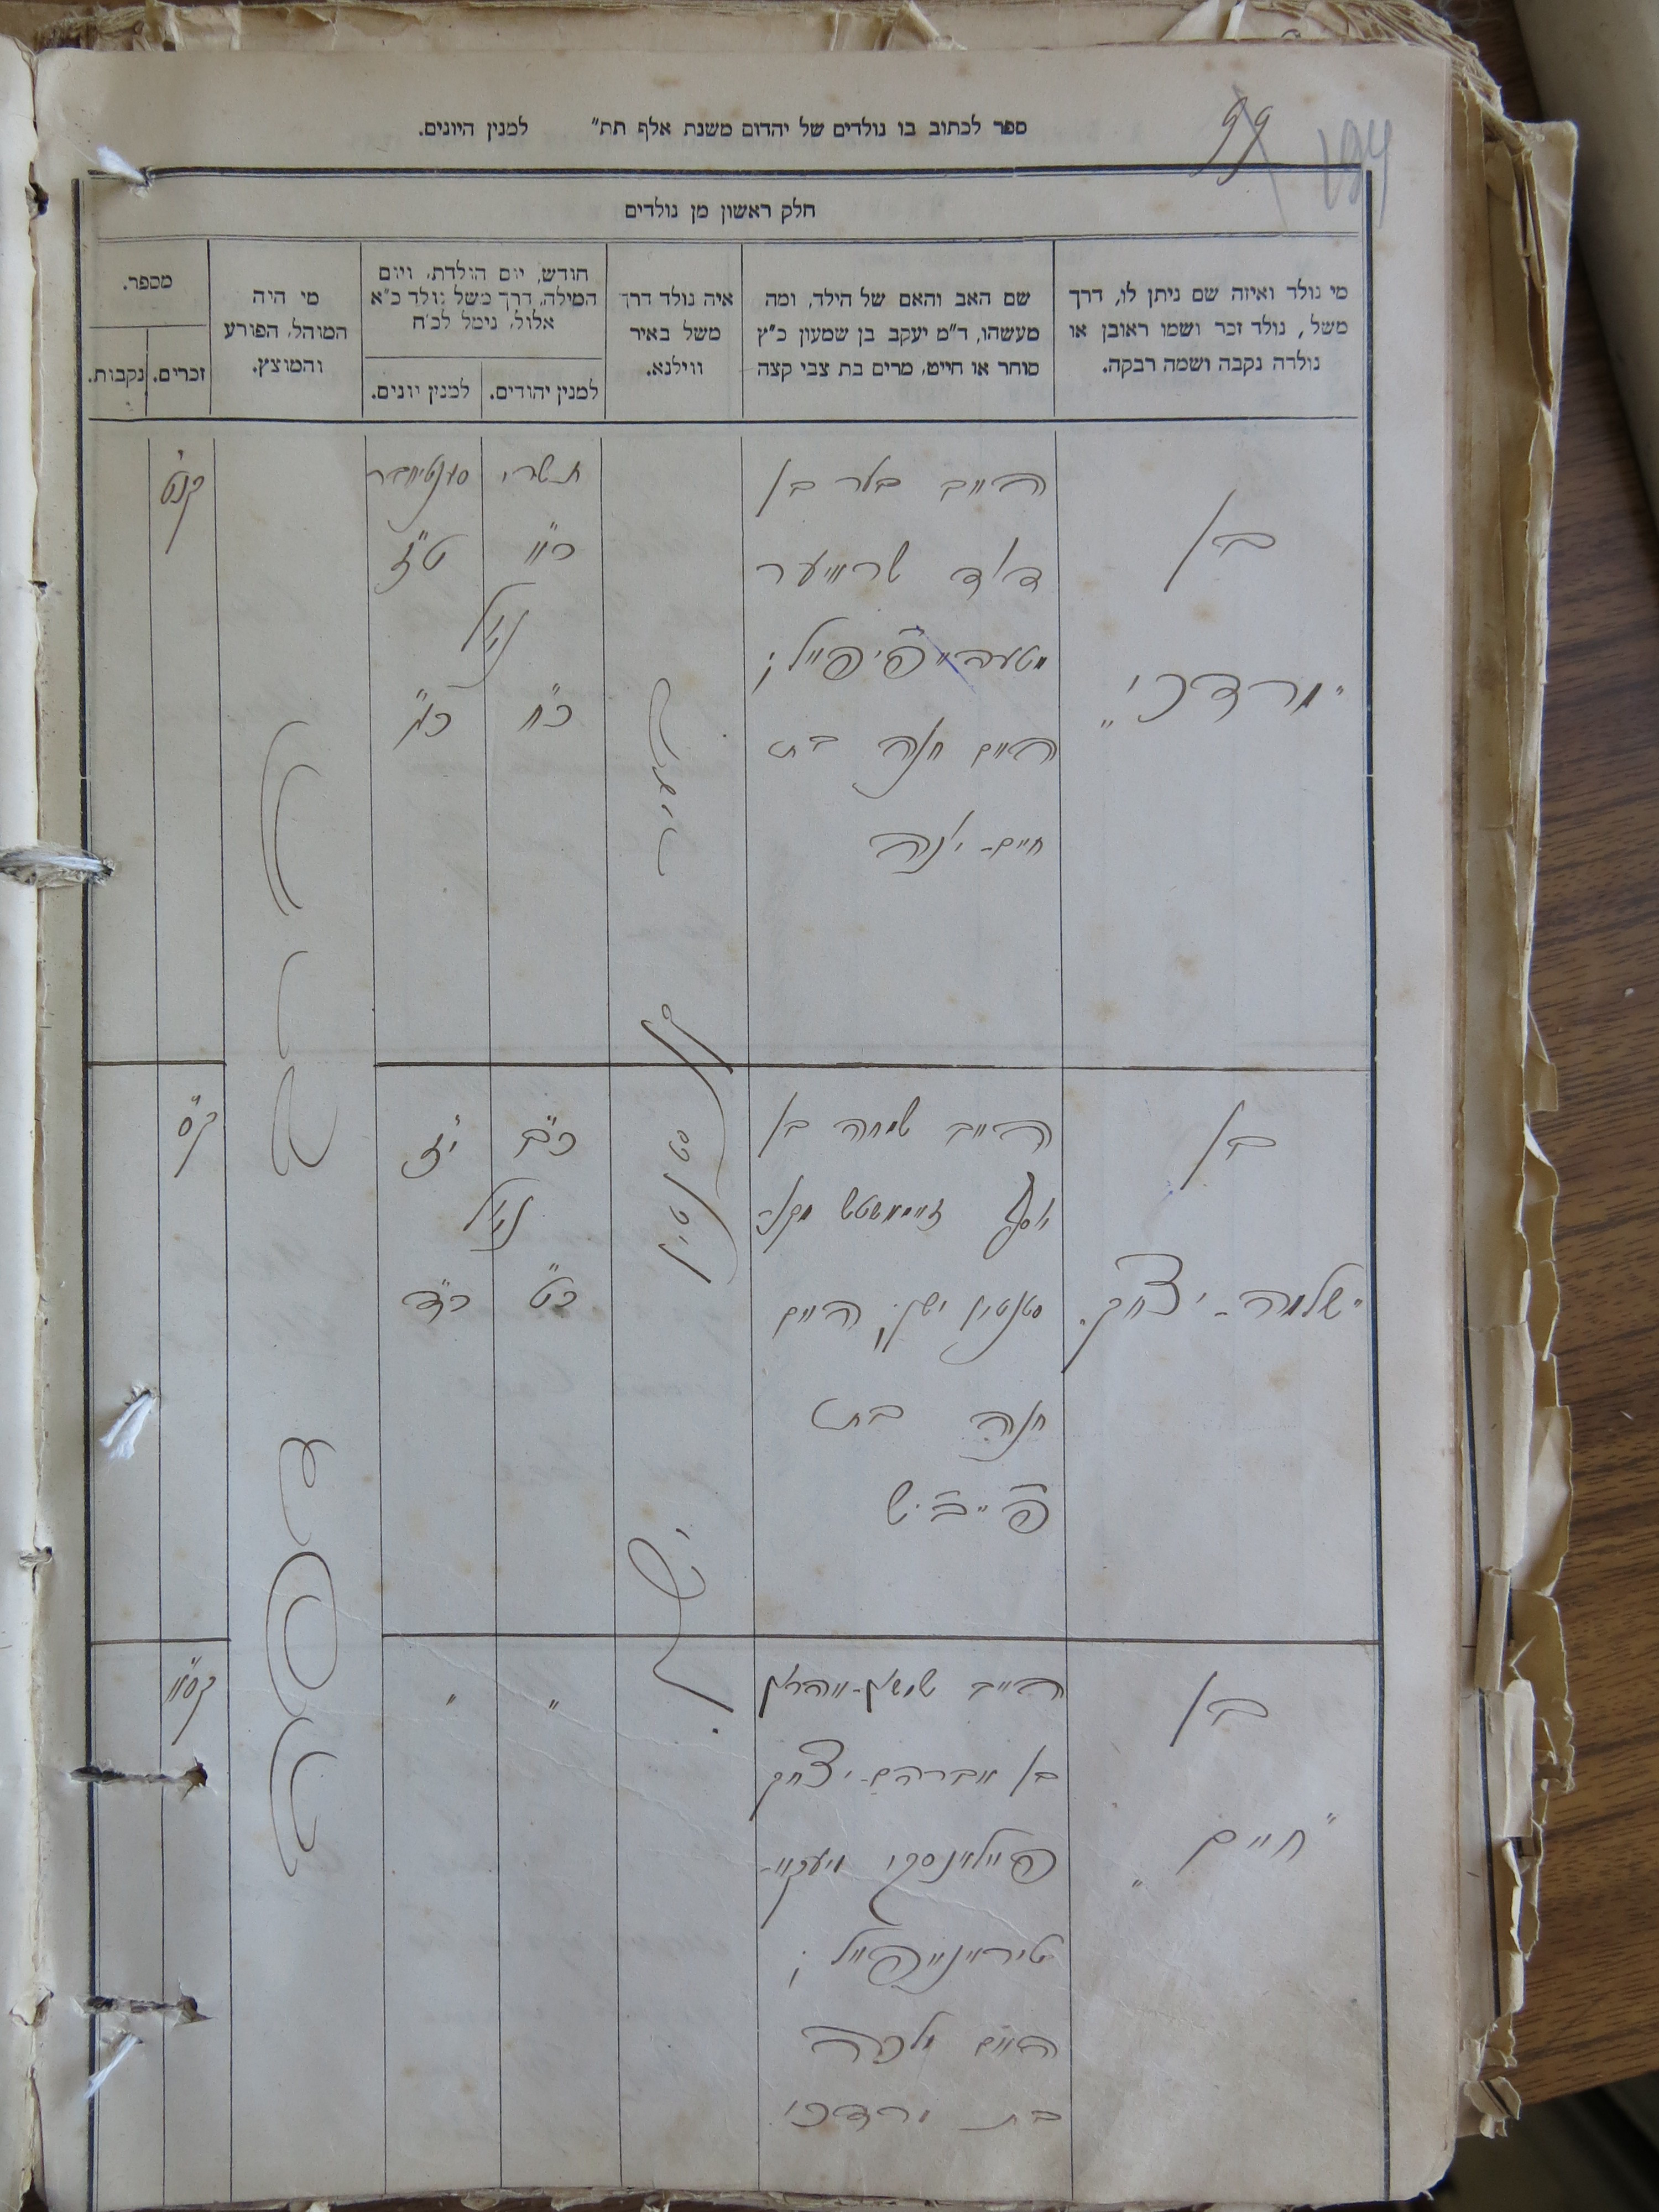 99
194
ספר לכתוב בו נולדים של יהדום משנת אלף תת״ למנין היונים.
חלק ראשון מן נולדים
מי נולד ואיזה שם ניתן לו, דרך
משל, נולד זכר ושמו ראובן או
נולדה נקבה ושמה רבקה.
שם האב והאם של הילד, ומה
מעשהו, ד״מ יעקב בן שמעון כ״ץ
סוחר או חייט, מרים בת צבי קצה
איה נולד דרך
משל באיר
ווילנא.
חודש, יום הולדת, ויום
המילה, דרך משל נולד כ״א
אלול, נימל לכ״ח
למנין יהודים.
למנין יונים.
מי היה
המוהל, הפורע
והמוצץ.
מספר.
זכרים.
נקבות.
בן
״מרדכי״
האב בער בן
דוד
האם חנה בת
חיים-יונה
בעיר
קאנסטנטין
ישן.
תשרי
סענטיאבר
ט״ז
נימול
כ״ח
כ״ג
קנ״ט
בן
״שלמה-יצחק״
האב שמחה בן
יוסף
סטנטין ישן, האם
חנה בת
פייביש
כ״ב
י״ז
נימול
כ״ט
כ״ד
ק״ס
בן
״חיים״
האב
בן אברהם-יצחק
האם מלכה
בת מרדכי
״
״
קס״א